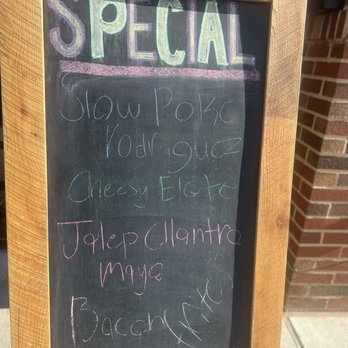 SPECIAL
Slow Poke
Rodriguez
Cheesy Elote
Jalep Cilantro
Mayo
Bacon
Fritos